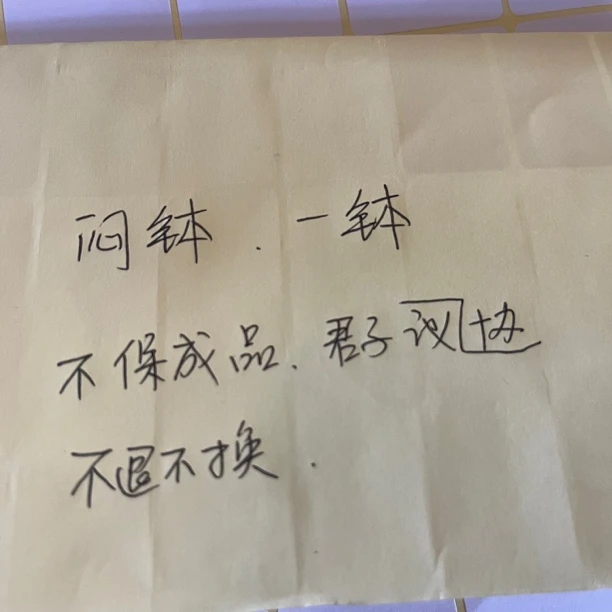 闷钵.一钵
不保成品、君子议协
不退不换.